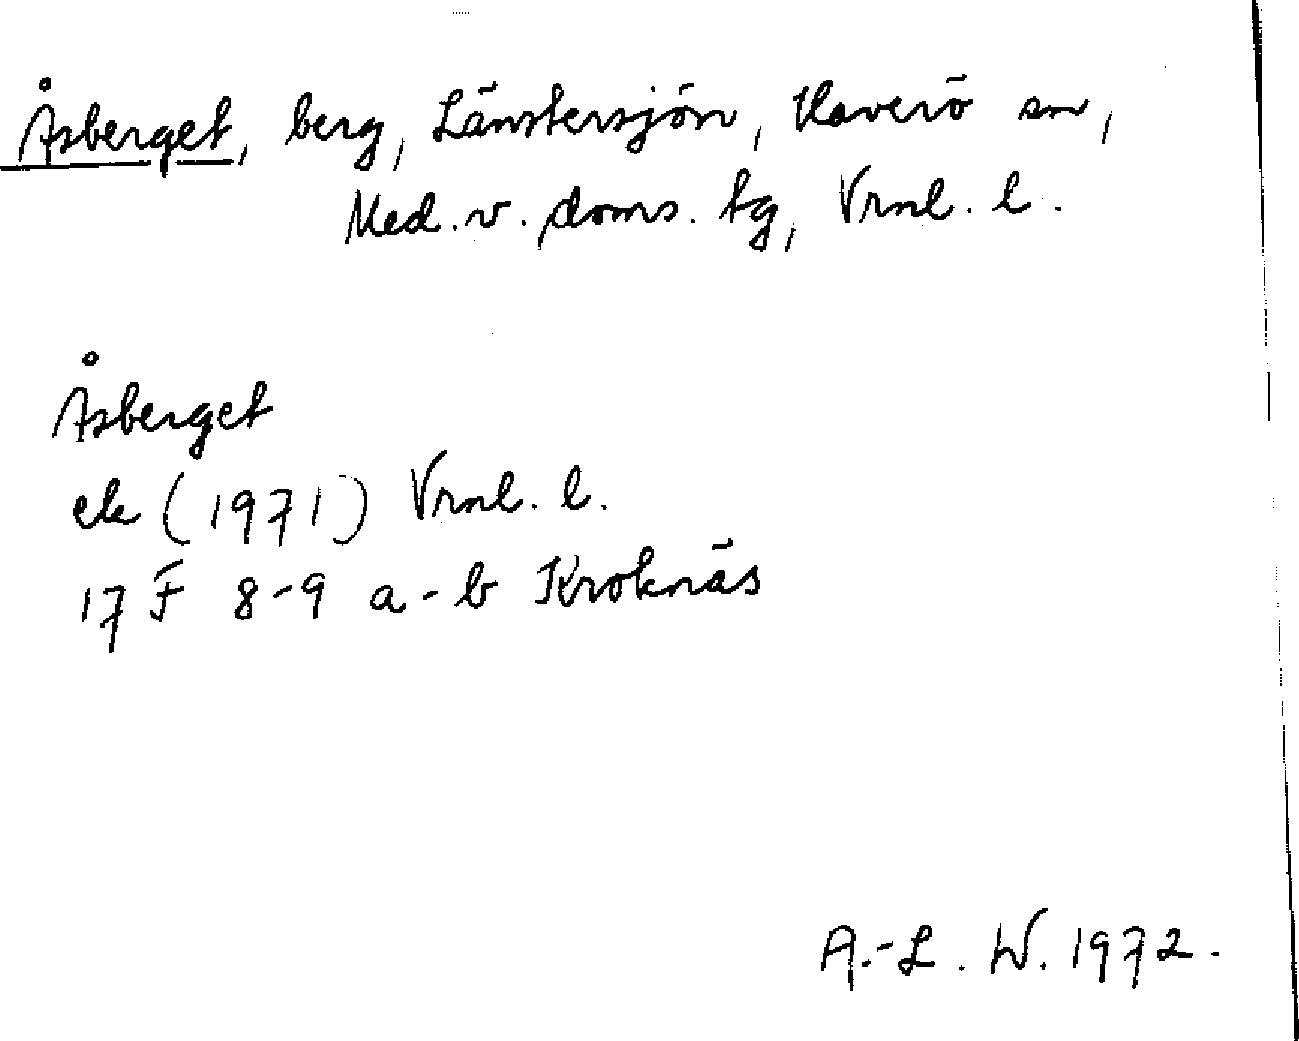 Åsberget, berg, Länstersjön, Haverö sn,
Med. v. doms. tg, Vrnl. l.
Åsberget
ek (1971) Vrnl. l.
17 F 8-9 a-b Kroknäs
A.-L. W. 1972.